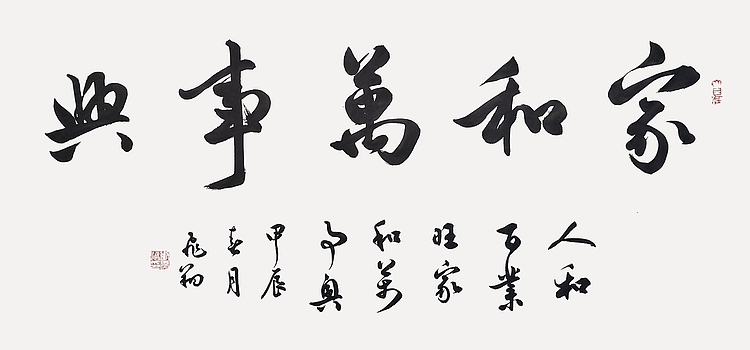 家和萬事興
人和
百業
旺家
和萬
事興
甲辰
春月
飛翔